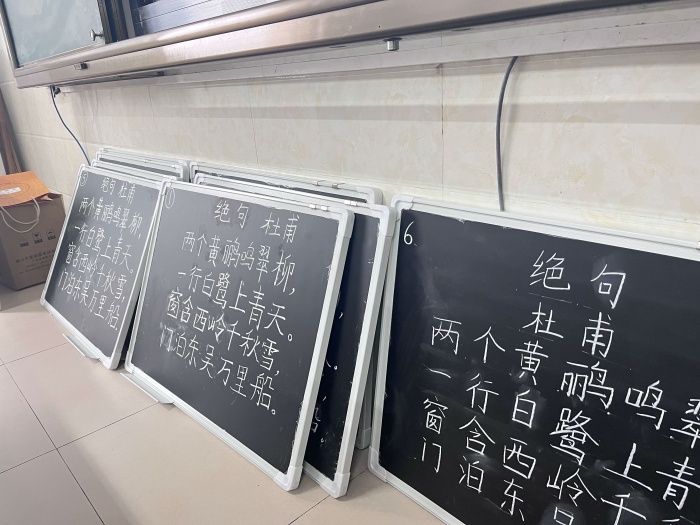 绝句 杜甫
两个黄鹂鸣翠柳,
一行白鹭上青天。
窗含西岭千秋雪,
门泊东吴万里船。
①
绝句 杜甫
两个黄鹂鸣翠柳,
一行白鹭上青天。
窗含西岭千秋雪,
门泊东吴万里船。
船。
6
绝句
杜甫
两个黄鹂鸣翠
一行白鹭上青
窗含西岭千
门泊东